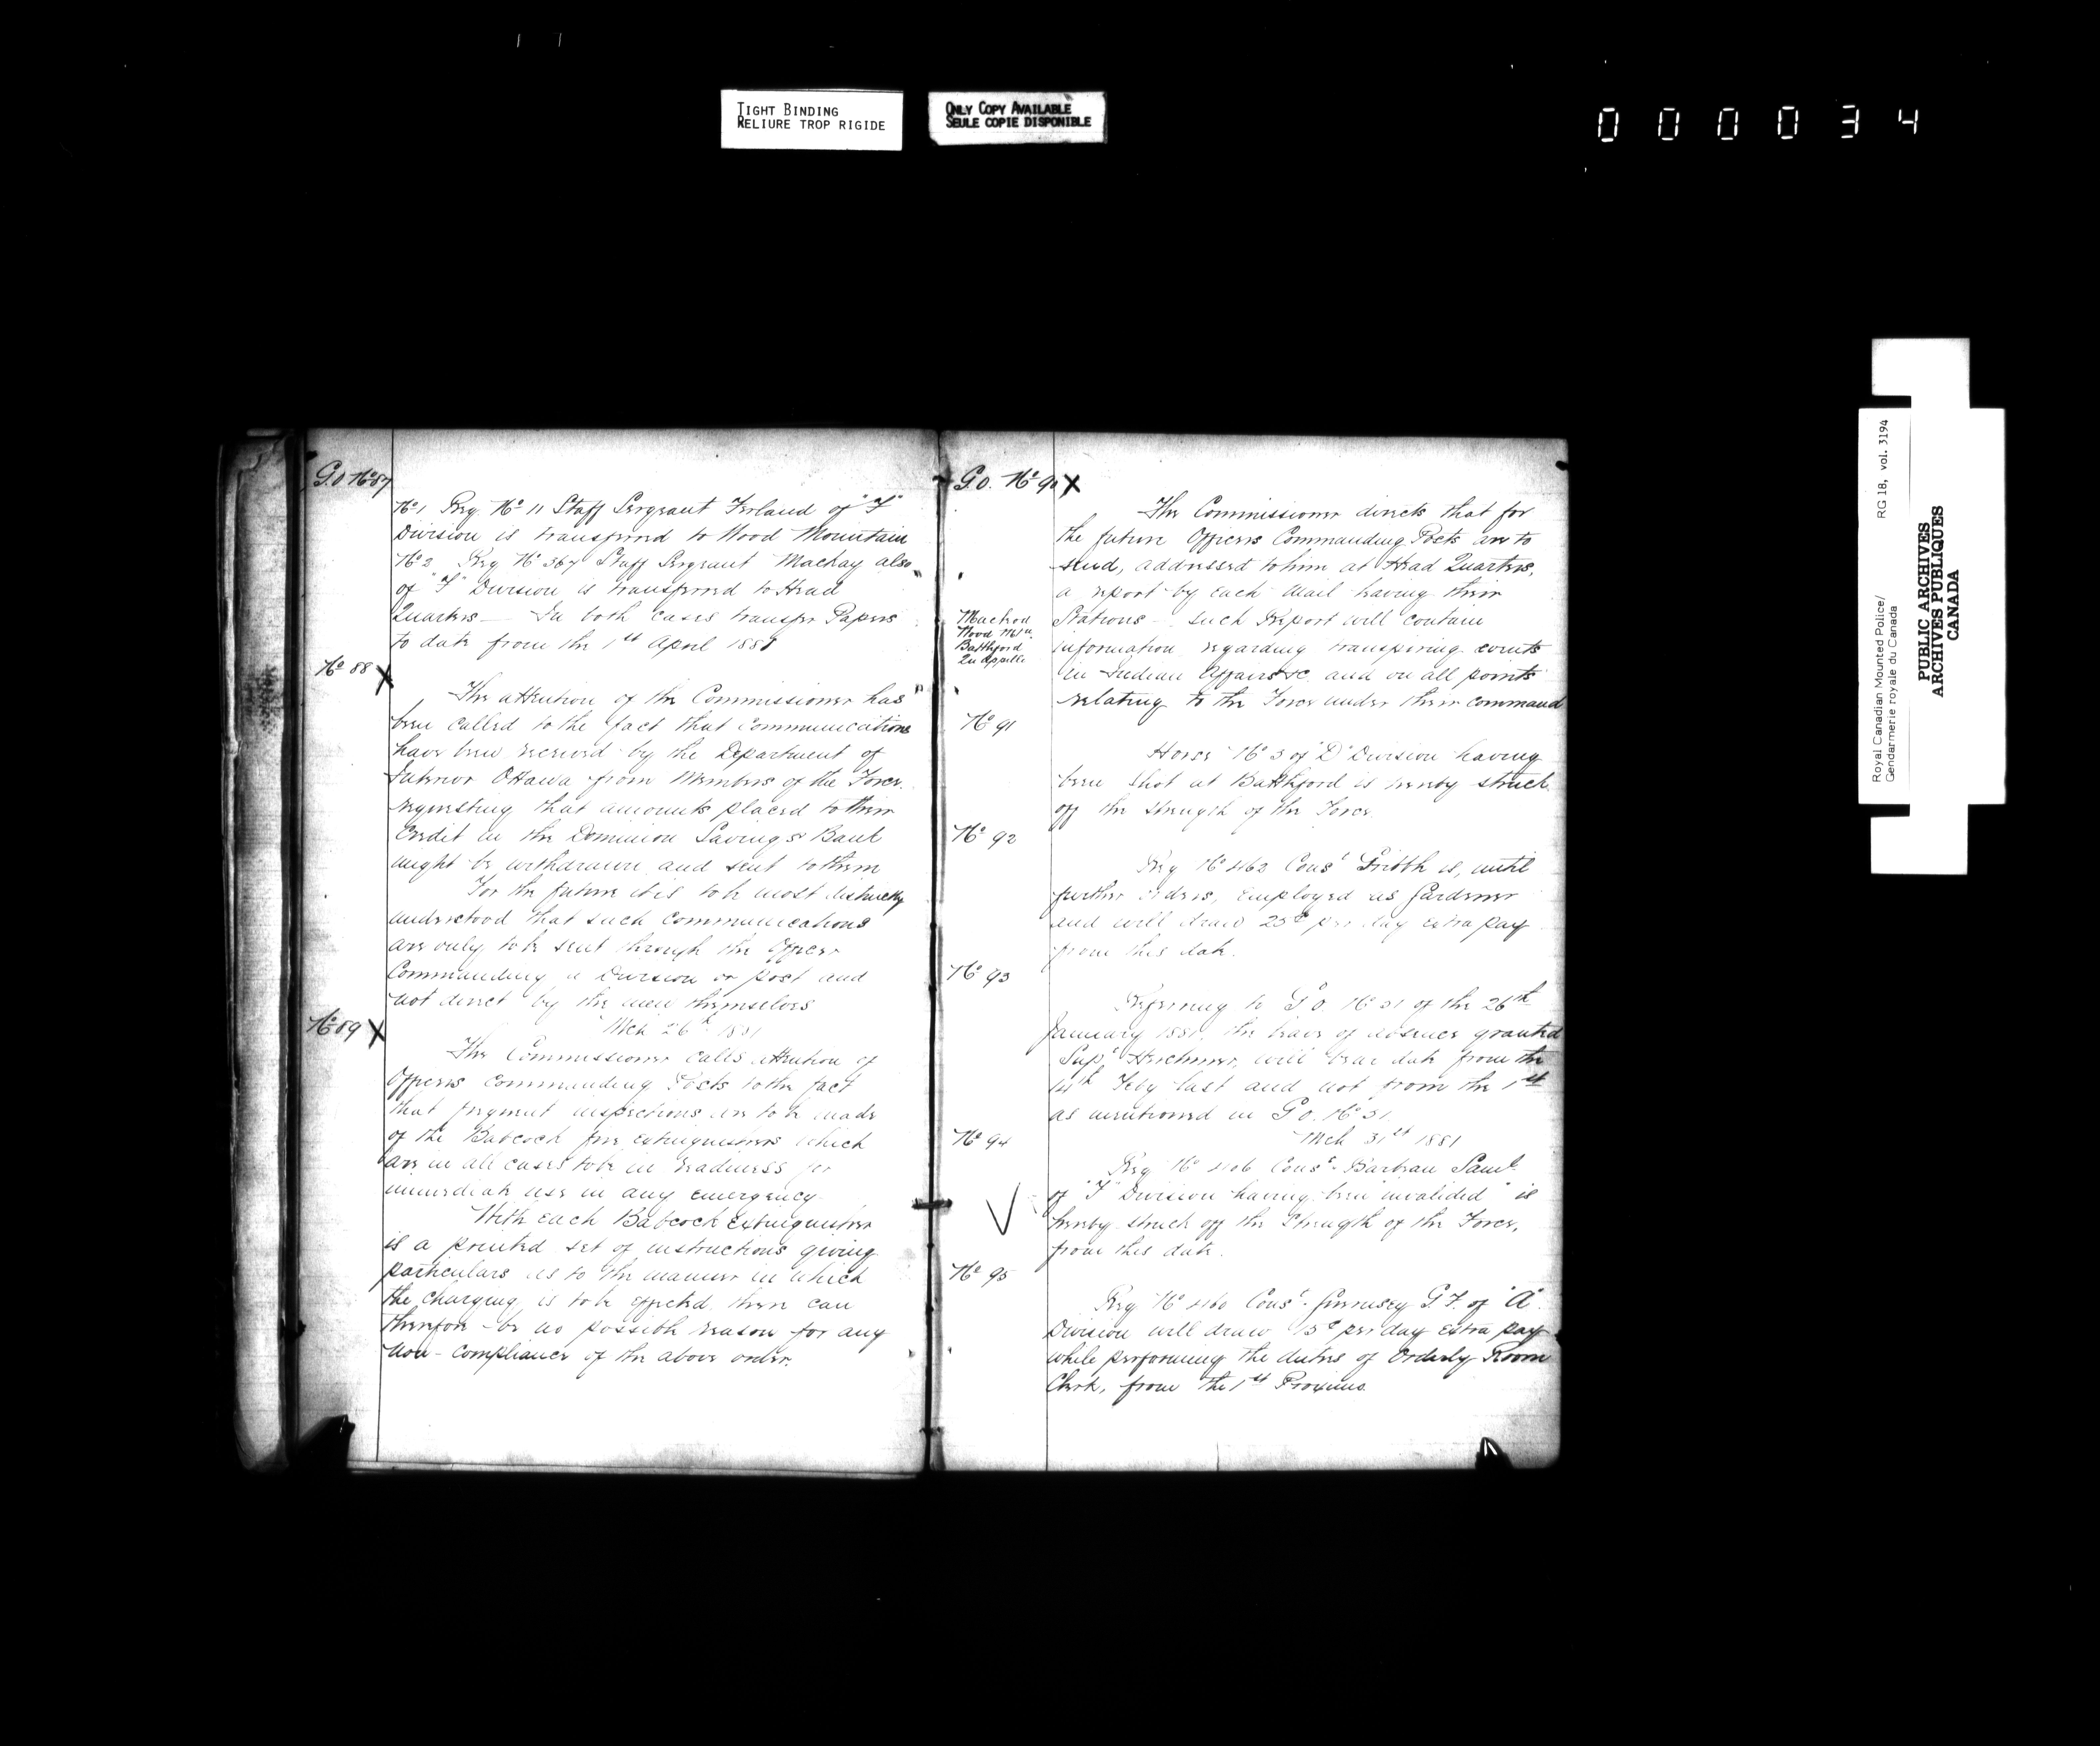 TIGHT BINDING
RELIURE TROP RIGIDE
ONLY COPY AVAILABLE
SEULE COPIE DISPONIBLE
000034
G.O Nº 87
Nº 1 Reg. Nº 11 Staff Sergeant Ferland of "F"
Division is transferred to Wood Mountain
Nº 2 Reg Nº 367 Staff Sergeant Mackay also
of "F" Division is transferred to Head
Quarters — In both cases transfer Papers
to date from the 1st April 1881
Nº 88 X
The attention of the Commissioner has
been called to the fact that communications
have been received by the Department of
Interior Ottawa from Members of the Force
requesting that amounts placed to their
Credit in the Dominion Savings Bank
might be withdrawn and sent to them
For the future it is to be most distinctly
understood that such communications
are only to be sent through the Officer
Commanding a Division or post and
not direct by the men themselves
Mch 26th 1881
Nº 89 X
The Commissioner calls attention of
Officers Commanding Posts to the fact
that frequent inspections are to be made
of the Babcock fire extinguishers which
are in all cases to be in readiness for
immediate use in any emergency
With each Babcock Extinguisher
is a printed set of instructions giving
particulars as to the manner in which
the charging is to be effected, there can
therefore be no possible reason for any
non-compliance of the above order.
G.O. Nº 90 X
The Commissioner directs that for
the future Officers Commanding Posts are to
send, addressed to him at Head Quarters,
a report by each Mail leaving their
Macleod
Wood Mtn
Battleford
Qu'Appelle
Stations — such Report will contain
information regarding transpiring events
in Indian Affairs &c. and on all points
relating to the Force under their command
Nº 91
Horse Nº 3 of "D" Division having
been shot at Battleford is hereby struck
off the strength of the Force.
Nº 92
Reg Nº 462 Const is, until
further orders, employed as Gardener
and will draw 25c per day extra pay
from this date.
Nº 93
Referring to G.O. Nº 31 of the 26th
January 1881. the leave of absence granted
Supt Herchmer, will bear date from the
14th Feby last and not from the 1st
as mentioned in G.O. Nº 31
Mch 31st 1881
Nº 94
Reg Nº 406 Const. Saml
of "F" Division having been "invalided" is
hereby struck off the Strength of the Force,
from this date.
Nº 95
Reg Nº 460 Const. Guernsey G.F. of "A"
Division will draw 15c per day extra pay
while performing the duties of Orderly Room
Clerk, from the 1st Proximo.
Royal Canadian Mounted Police/
Gendarmerie royale du Canada
RG 18, vol. 3194
PUBLIC ARCHIVES
ARCHIVES PUBLIQUES
CANADA